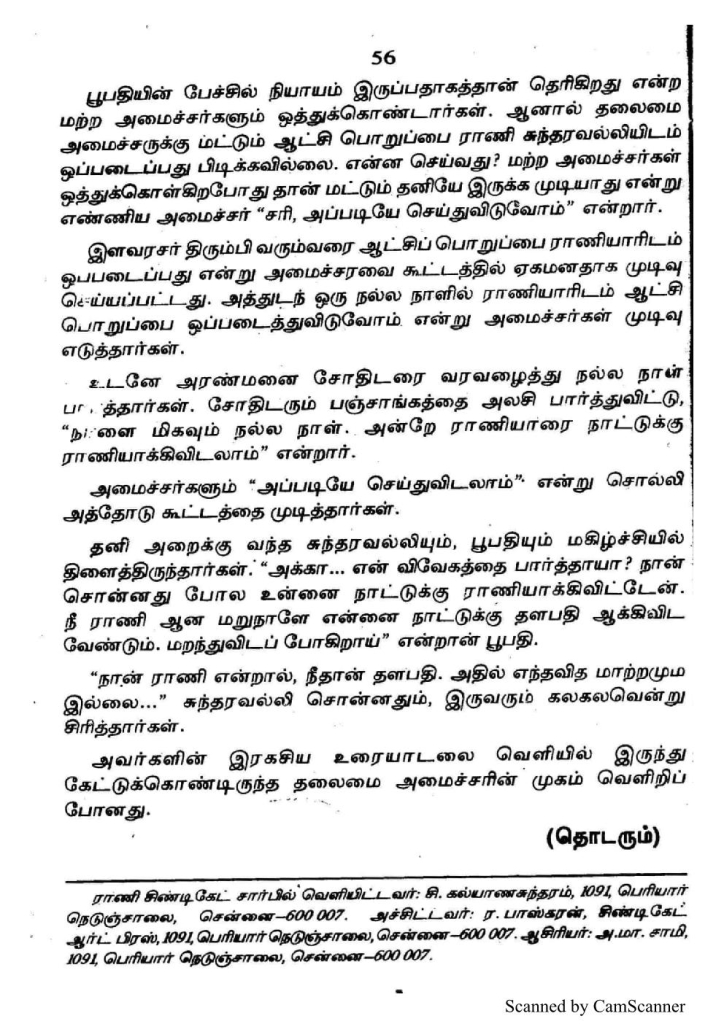 56
பூபதியின் பேச்சில் நியாயம் இருப்பதாகத்தான் தெரிகிறது என்ற
மற்ற அமைச்சர்களும் ஒத்துக்கொண்டார்கள். ஆனால் தலைமை
அமைச்சருக்கு மட்டும் ஆட்சி பொறுப்பை ராணி சுந்தரவல்லியிடம்
ஒப்படைப்பது பிடிக்கவில்லை. என்ன செய்வது? மற்ற அமைச்சர்கள்
ஒத்துக்கொள்கிறபோது தான் மட்டும் தனியே இருக்க முடியாது என்று
எண்ணிய அமைச்சர் “சரி, அப்படியே செய்துவிடுவோம்” என்றார்.
இளவரசர் திரும்பி வரும்வரை ஆட்சிப் பொறுப்பை ராணியாரிடம்
ஒபபடைப்பது என்று அமைச்சரவை கூட்டத்தில் ஏகமனதாக முடிவு
செய்யப்பட்டது. அத்துடந் ஒரு நல்ல நாளில் ராணியாரிடம் ஆட்சி
பொறுப்பை ஒப்படைத்துவிடுவோம் என்று அமைச்சர்கள் முடிவு
எடுத்தார்கள்.
உடனே அரண்மனை சோதிடரை வரவழைத்து நல்ல நாள்
பார்த்தார்கள். சோதிடரும் பஞ்சாங்கத்தை அலசி பார்த்துவிட்டு,
“நாளை மிகவும் நல்ல நாள். அன்றே ராணியாரை நாட்டுக்கு
ராணியாக்கிவிடலாம்” என்றார்.
அமைச்சர்களும் “அப்படியே செய்துவிடலாம்” என்று சொல்லி
அத்தோடு கூட்டத்தை முடித்தார்கள்.
தனி அறைக்கு வந்த சுந்தரவல்லியும், பூபதியும் மகிழ்ச்சியில்
திளைத்திருந்தார்கள். “அக்கா... என் விவேகத்தை பார்த்தாயா? நான்
சொன்னது போல உன்னை நாட்டுக்கு ராணியாக்கிவிட்டேன்.
நீ ராணி ஆன மறுநாளே என்னை நாட்டுக்கு தளபதி ஆக்கிவிட
வேண்டும். மறந்துவிடப் போகிறாய்” என்றான் பூபதி.
“நான் ராணி என்றால், நீதான் தளபதி. அதில் எந்தவித மாற்றமும
இல்லை...” சுந்தரவல்லி சொன்னதும், இருவரும் கலகலவென்று
சிரித்தார்கள்.
அவர்களின் இரகசிய உரையாடலை வெளியில் இருந்து
கேட்டுக்கொண்டிருந்த தலைமை அமைச்சரின் முகம் வெளிறிப்
போனது.
(தொடரும்)
ராணி சிண்டிகேட் சார்பில் வெளியிட்டவர்: சி. கல்யாணசுந்தரம், 1091, பெரியார்
நெடுஞ்சாலை, சென்னை–600 007. அச்சிட்டவர்: ர. பாஸ்கரன், சிண்டிகேட்
ஆர்ட் பிரஸ், 1091, பெரியார் நெடுஞ்சாலை, சென்னை–600 007. ஆசிரியர்: அ.மா. சாமி,
1091, பெரியார் நெடுஞ்சாலை, சென்னை–600 007.
Scanned by CamScanner